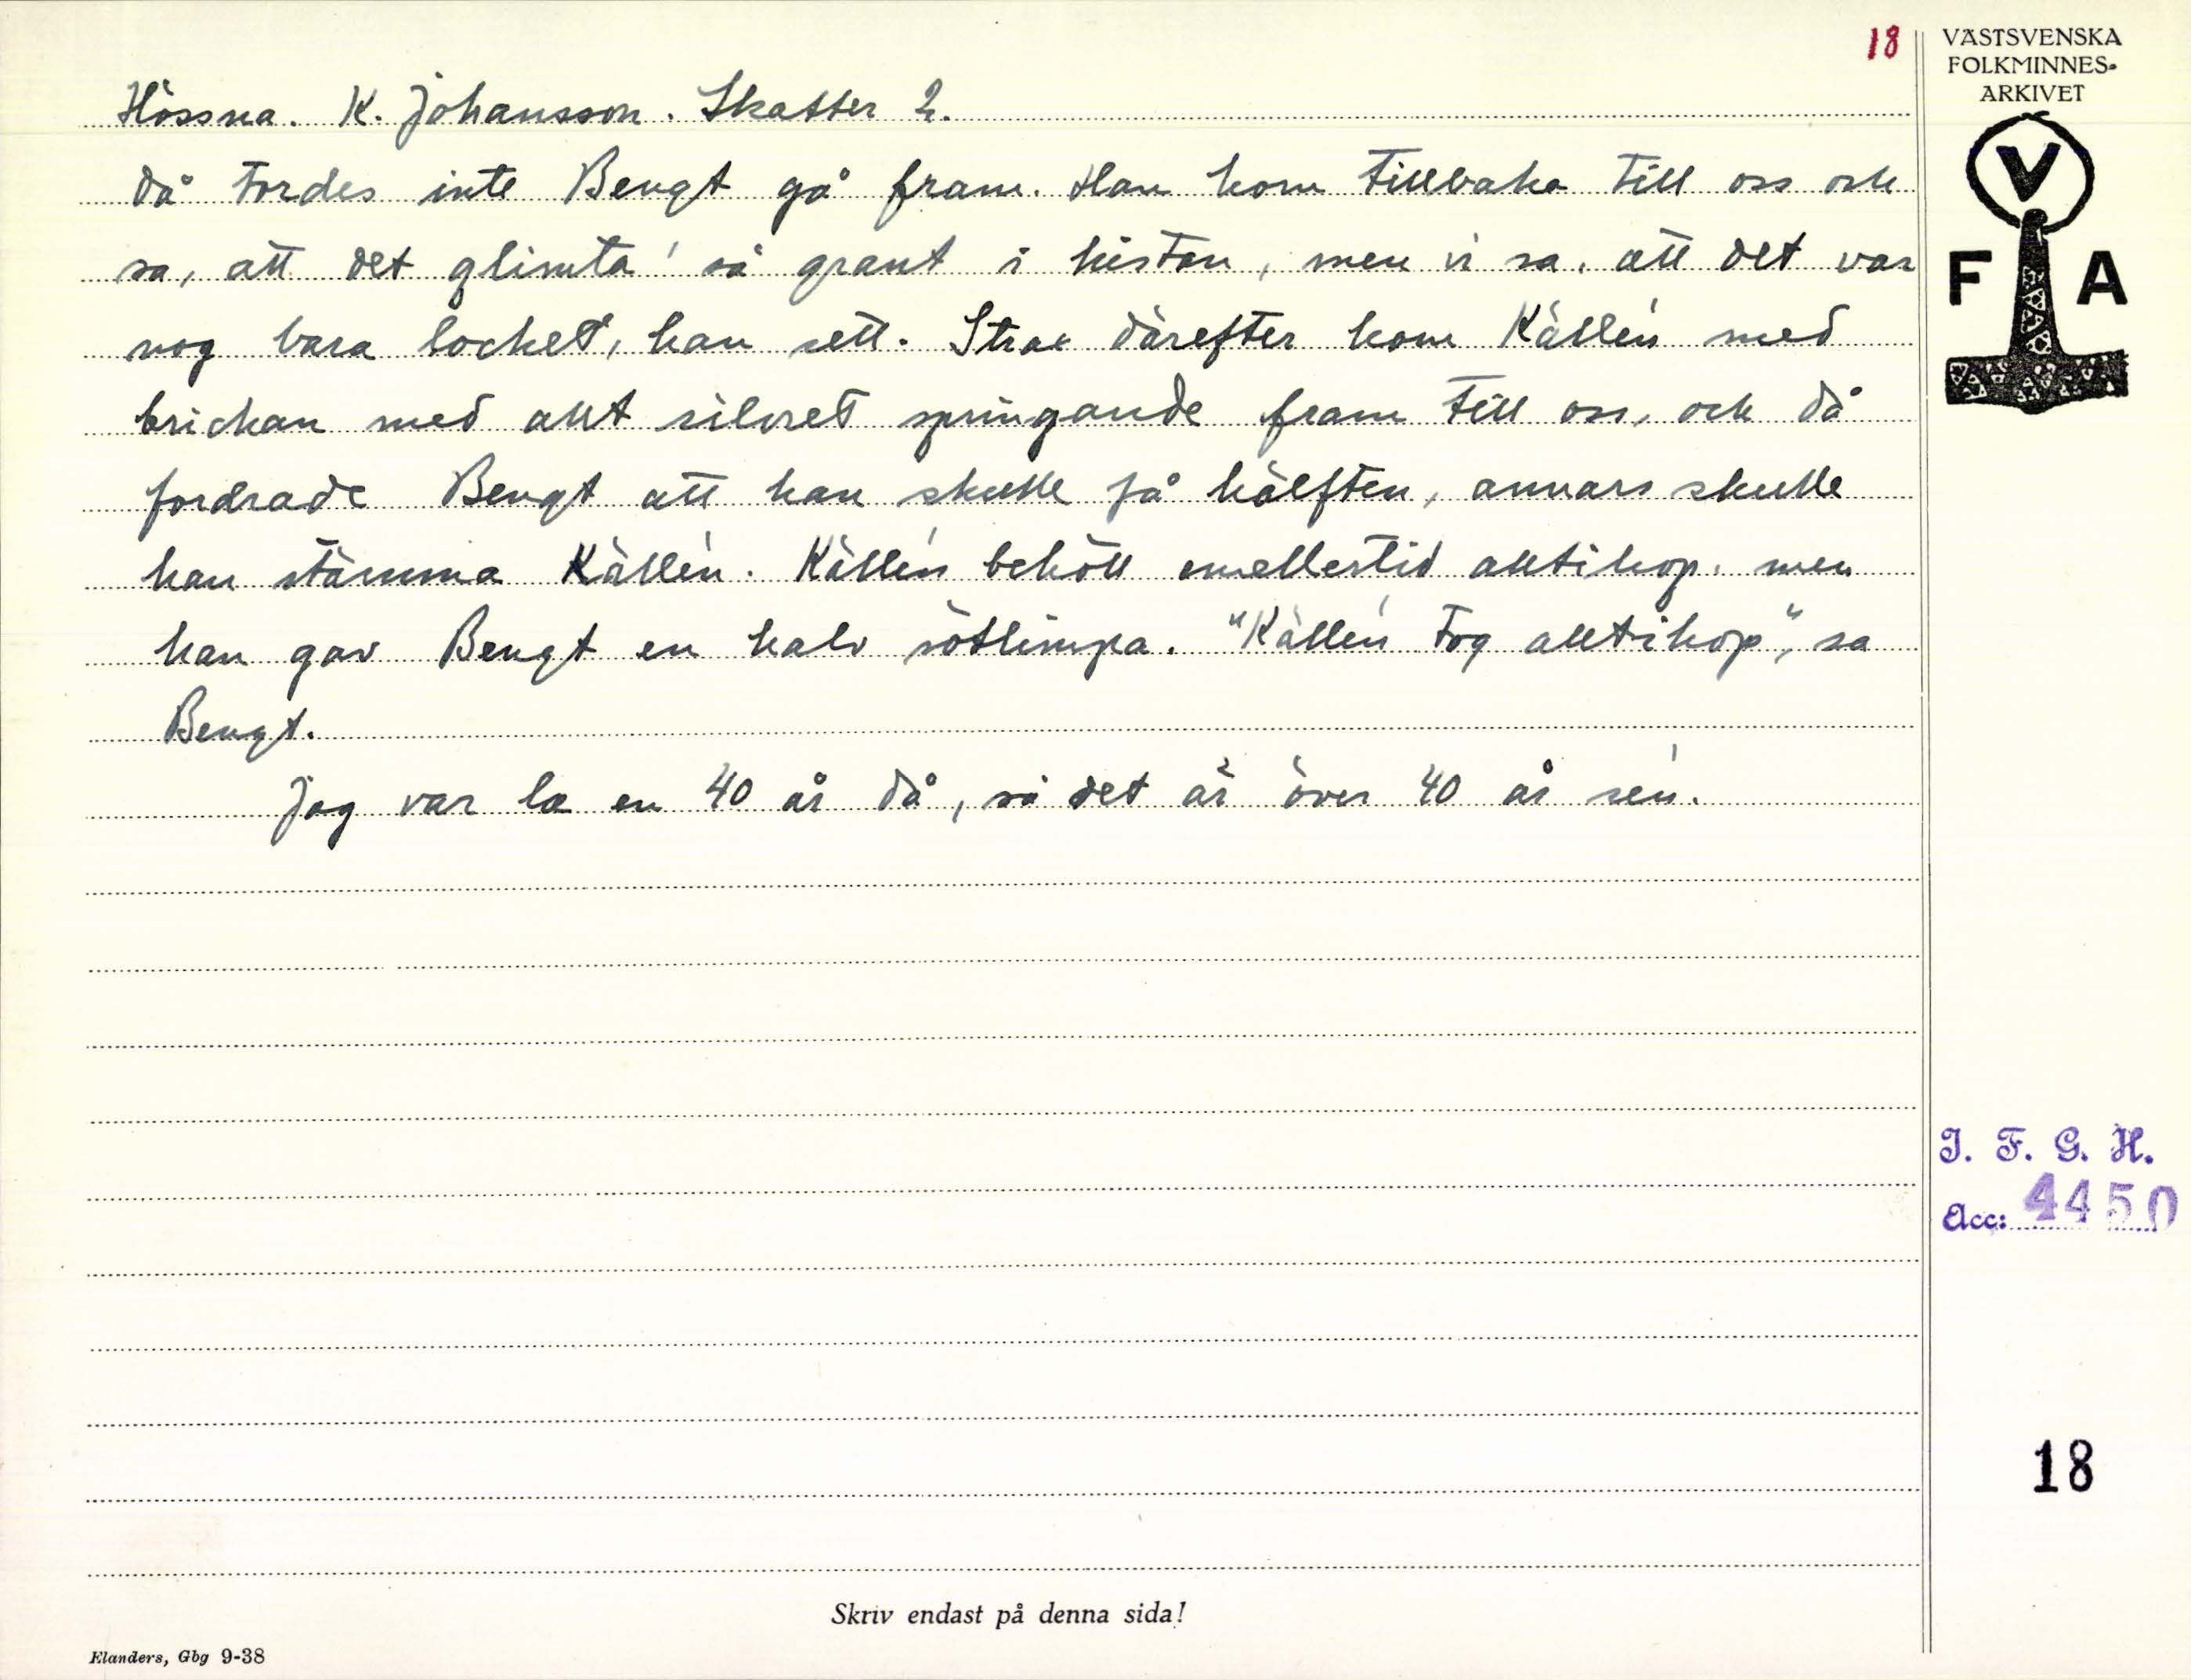 18
VÄSTSVENSKA
FOLKMINNES-
ARKIVET
V
F A
Hössna. K. Johansson. Skatter 2.
då tordes inte Bengt gå fram. Han kom tillbaka till oss och
sa, att det glimta' så grant i kistan, men vi sa, att det var
nog bara locket, han sett. Strax därefter kom Källén med
brickan med allt silvret springande fram till oss, och då
fordrade Bengt att han skulle få hälften, annars skulle
han stämma Källén. Källén behöll emellertid alltihop, men
han gav Bengt en halv sötlimpa. "Källén tog alltihop", sa
Bengt.
Jag var la en 40 år då, så det är över 40 år sen.
I. F. G. H.
Acc: 4450
18
Skriv endast på denna sida!
Elanders, Gbg 9-38